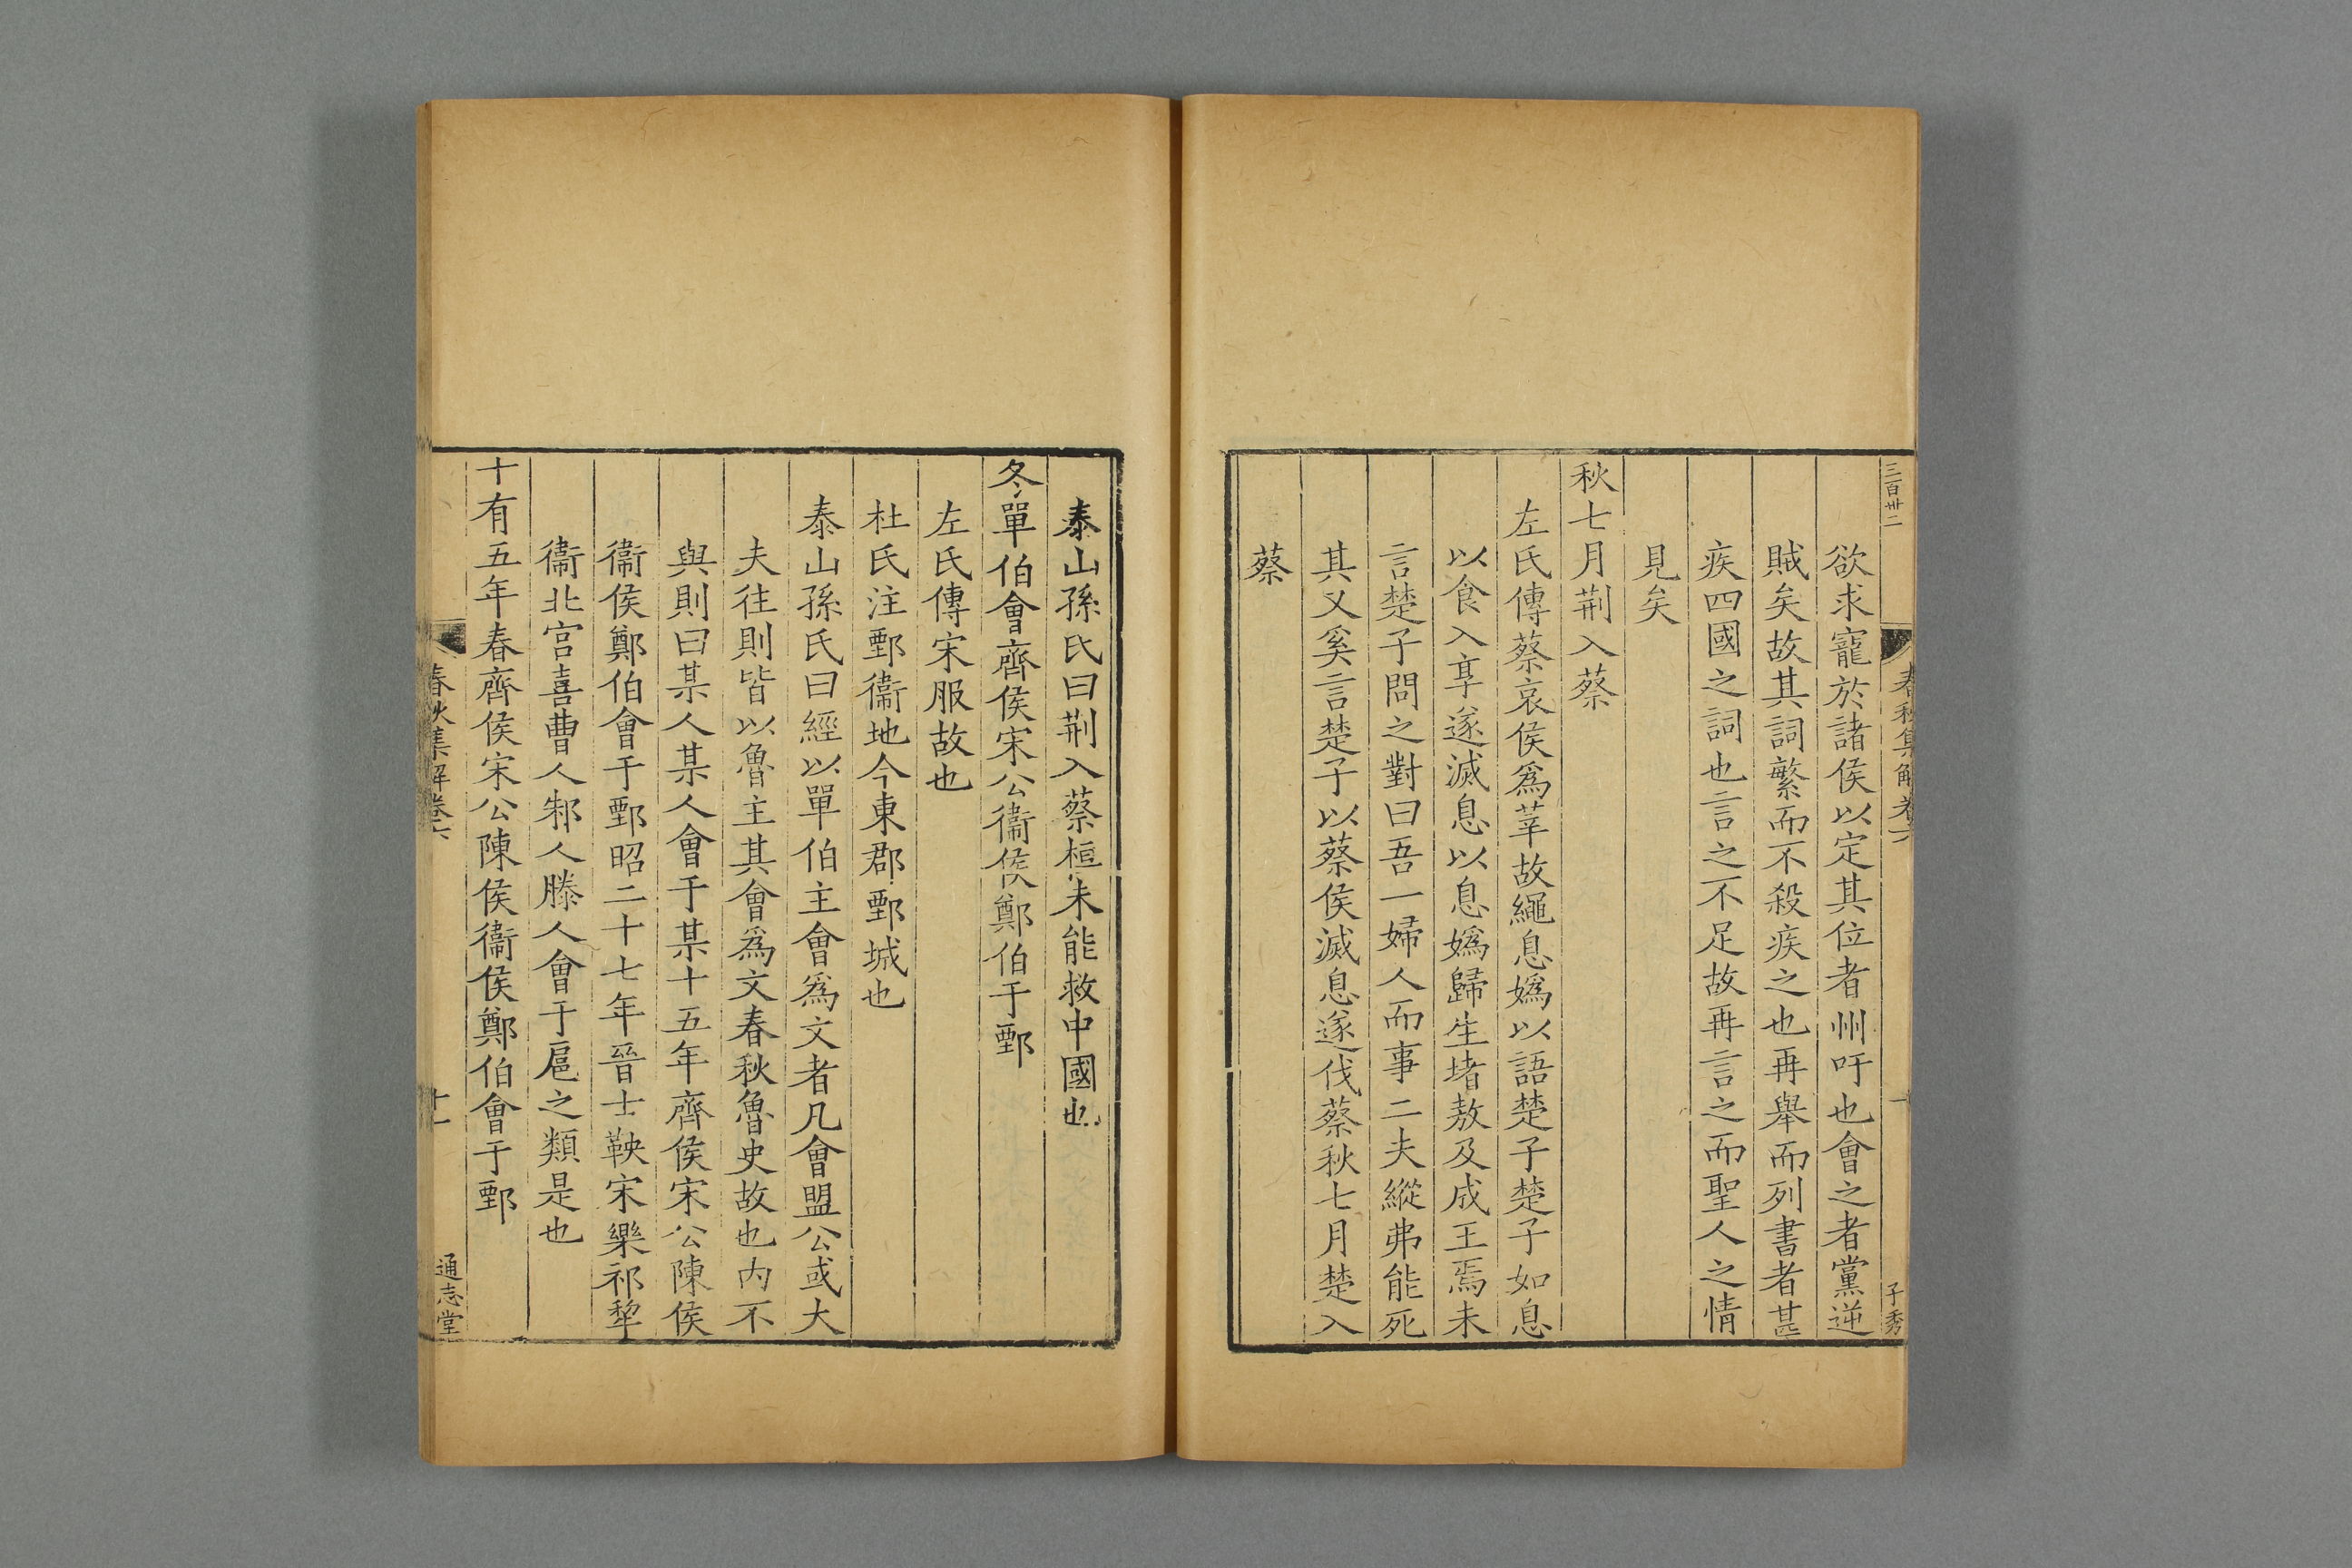 三百卅二
春秋集解卷六
子秀
欲求寵於諸侯以定其位者州吁也會之者黨逆
賊矣故其詞繁而不殺疾之也再舉而列書者甚
疾四國之詞也言之不足故再言之而聖人之情
見矣
秋七月荆入蔡
左氏傳蔡哀侯爲莘故繩息嬀以語楚子楚子如息
以食入享遂滅息以息嬀歸生堵敖及成王焉未
言楚子問之對曰吾一婦人而事二夫縱弗能死
其又奚言楚子以蔡侯滅息遂伐蔡秋七月楚入
蔡
泰山孫氏曰荆入蔡桓未能救中國也
冬單伯會齊侯宋公衞侯鄭伯于鄄
左氏傳宋服故也
杜氏注鄄衞地今東郡鄄城也
泰山孫氏曰經以單伯主會爲文者凡會盟公或大
夫往則皆以魯主其會爲文春秋魯史故也内不
與則曰某人某人會于某十五年齊侯宋公陳侯
衞侯鄭伯會于鄄昭二十七年晉士鞅宋樂祁犂
衞北宮喜曹人邾人滕人會于扈之類是也
十有五年春齊侯宋公陳侯衞侯鄭伯會于鄄
春秋集解卷六
十一
通志堂